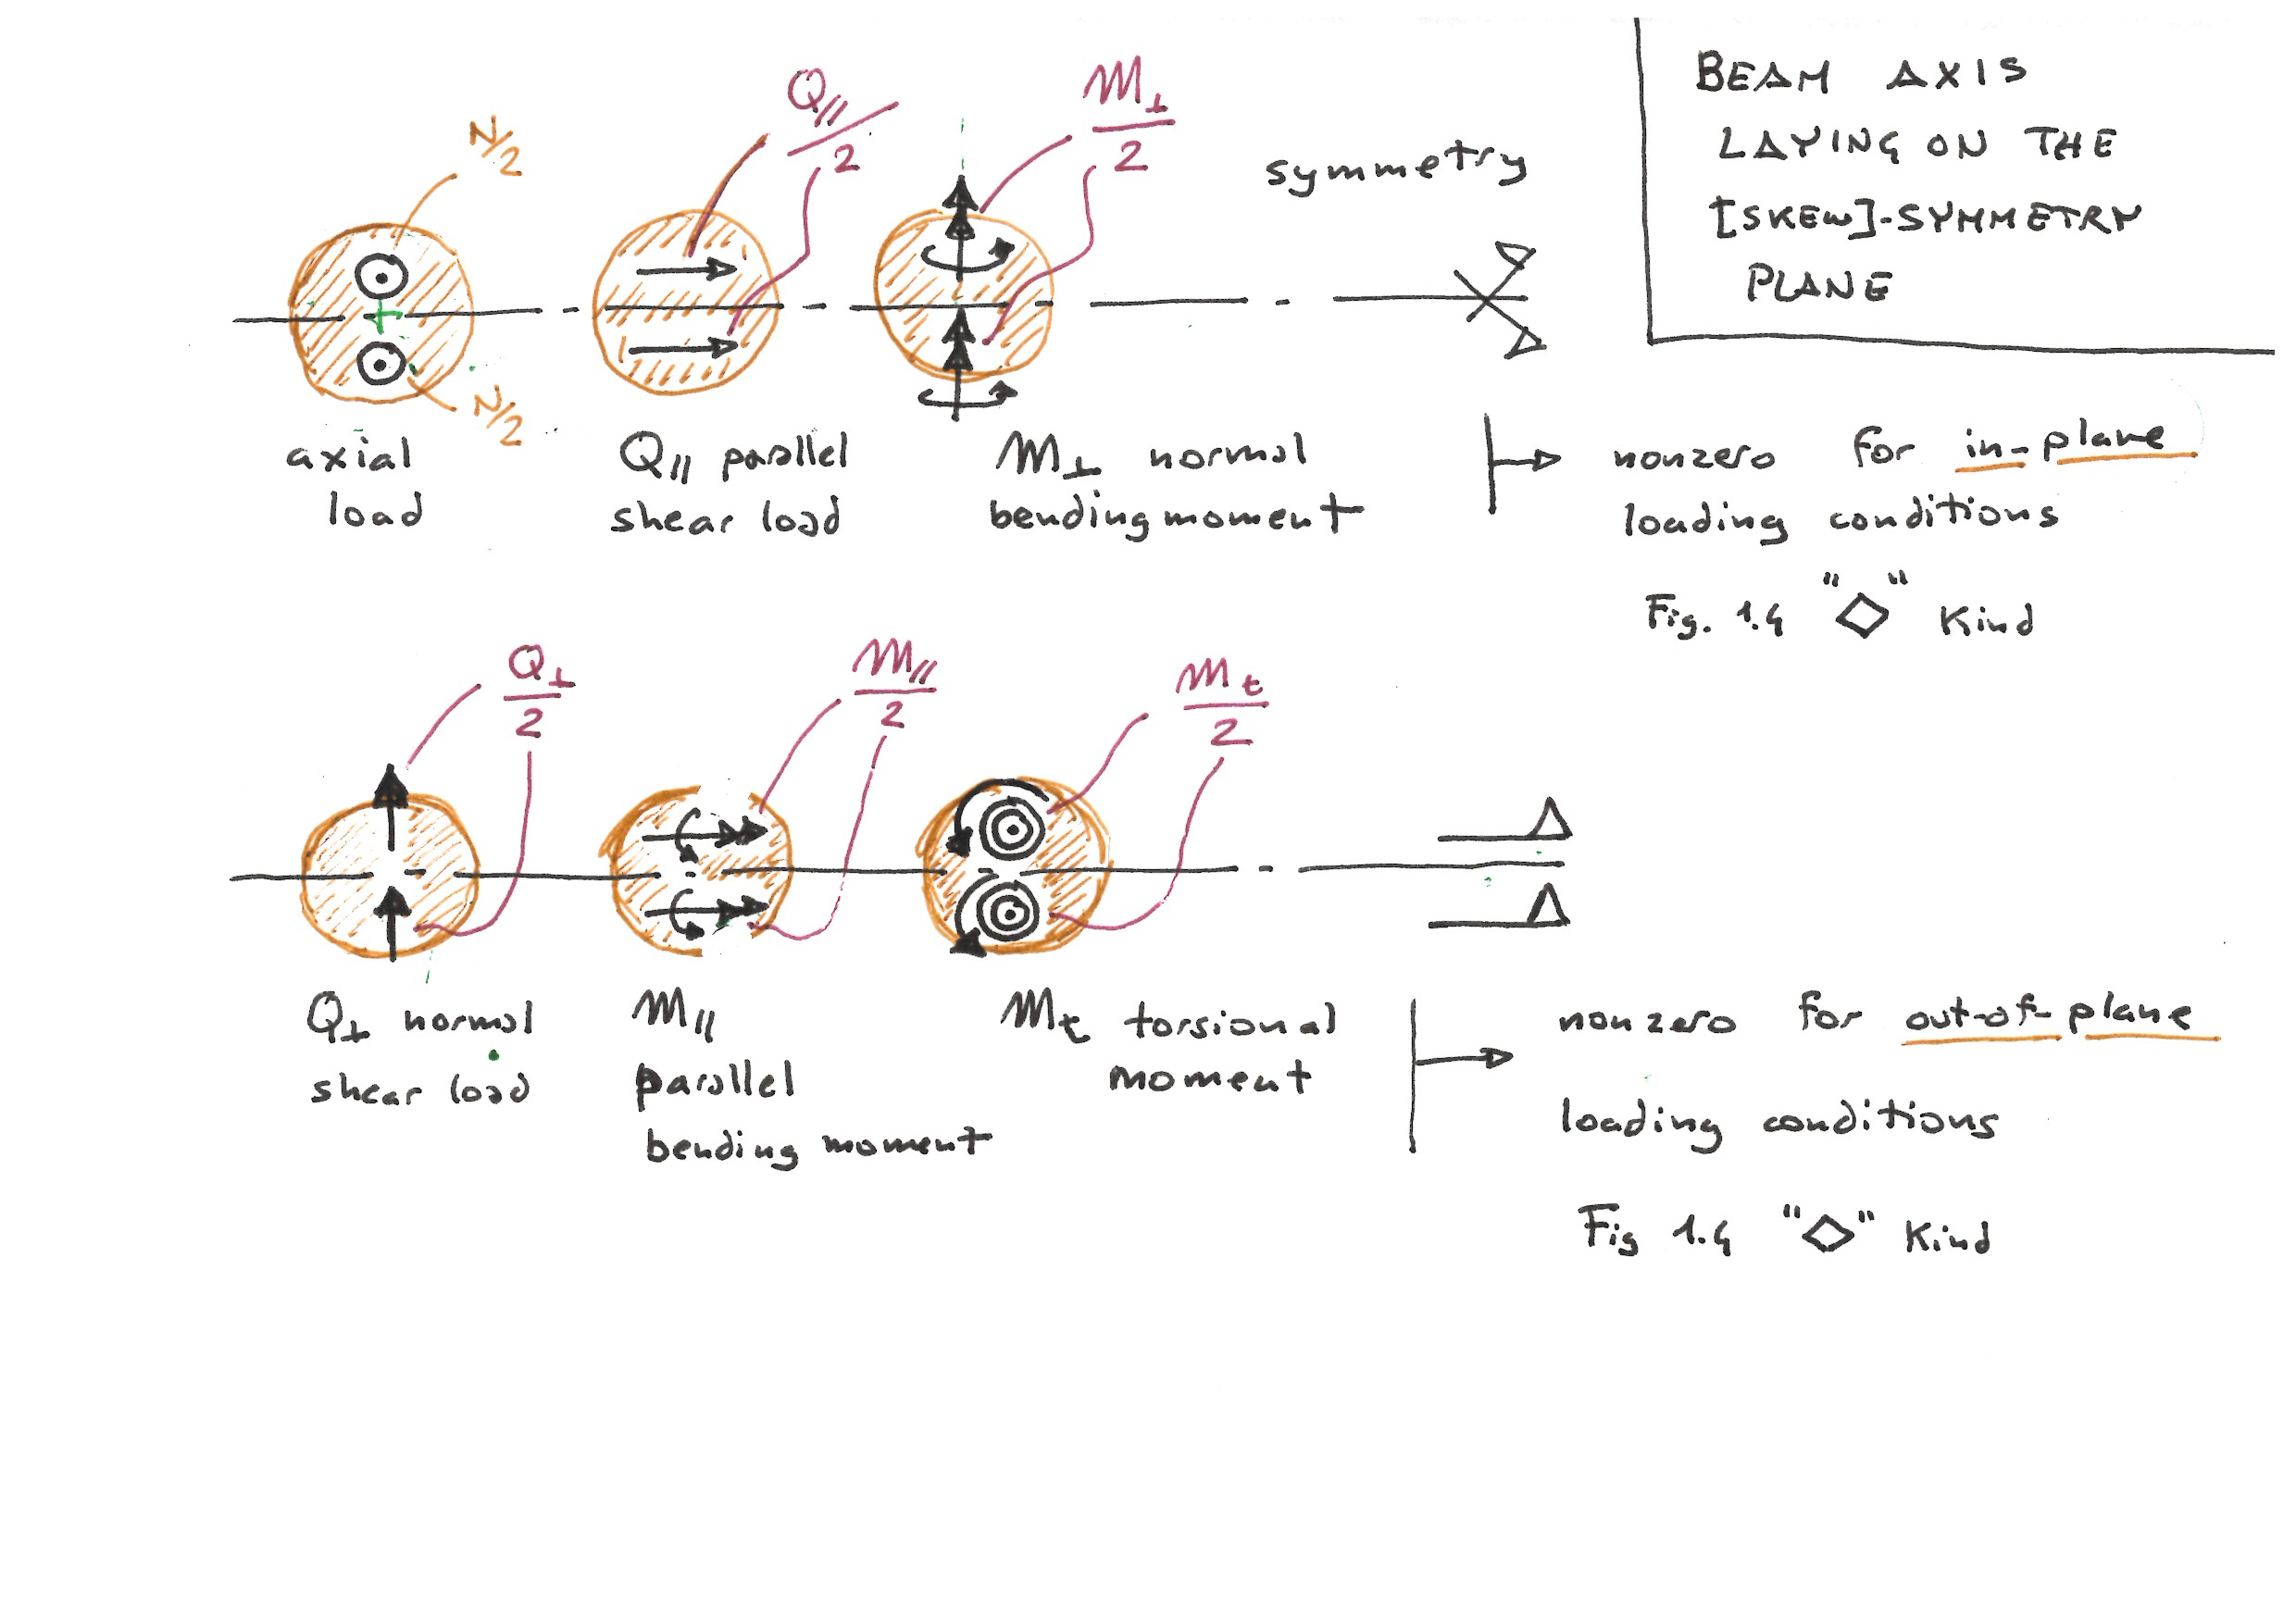 BEAM AXIS
LAYING ON THE
[SKEW]-SYMMETRY
PLANE
N/2
Q∥/2
M⊥/2
symmetry
N/2
axial
load
Q∥ parallel
shear load
M⊥ normal
bending moment
nonzero for in-plane
loading conditions
Fig. 1.4 "◇" Kind
Q⊥/2
M∥/2
Mt/2
Q⊥ normal
shear load
M∥
parallel
bending moment
Mt torsional
moment
nonzero for out-of-plane
loading conditions
Fig 1.4 "◇" Kind